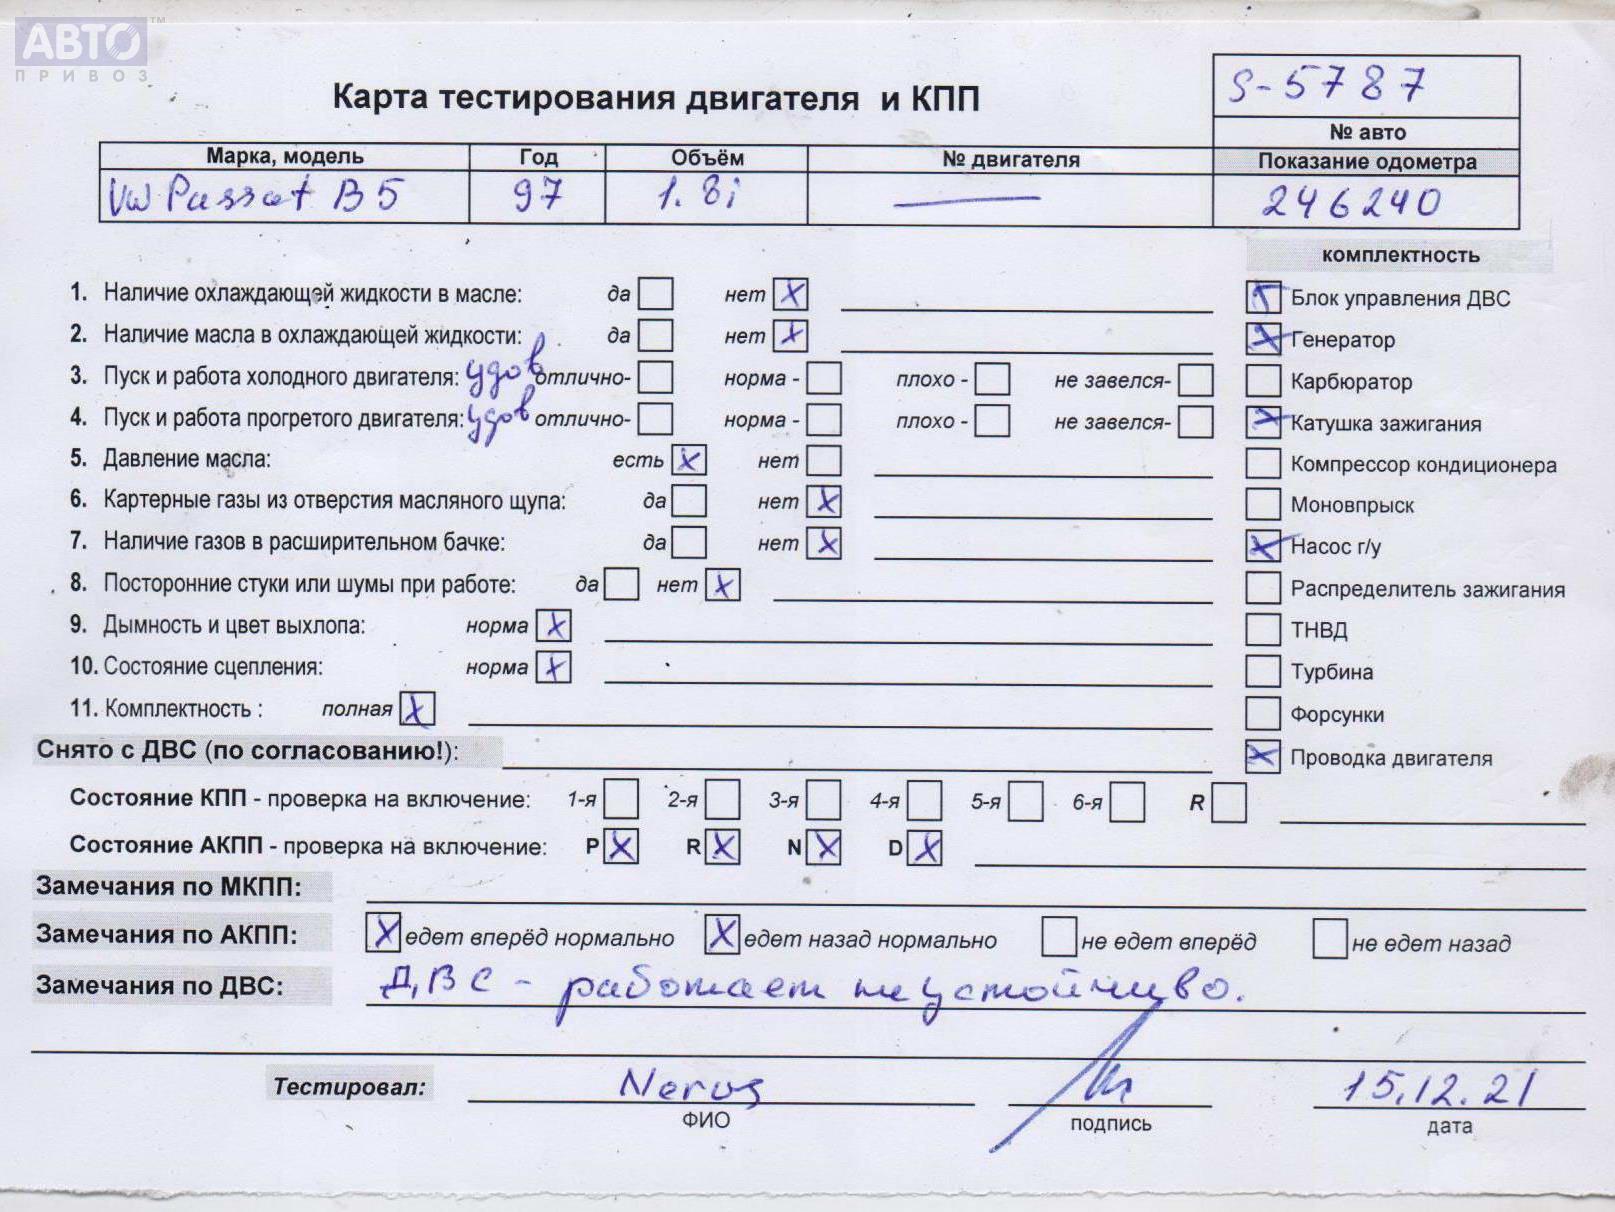 АВТО™
ПРИВОЗ
Карта тестирования двигателя и КПП
S-5787
№ авто
Марка, модель Год Объём № двигателя Показание одометра
VW Passat B5 97 1.8i — 246240
комплектность
1. Наличие охлаждающей жидкости в масле: да нет X
Блок управления ДВС
2. Наличие масла в охлаждающей жидкости: да нет X
Генератор
3. Пуск и работа холодного двигателя: удов отлично- норма - плохо - не завелся-
Карбюратор
4. Пуск и работа прогретого двигателя: удов отлично- норма - плохо - не завелся-
Катушка зажигания
5. Давление масла: есть X нет
Компрессор кондиционера
6. Картерные газы из отверстия масляного щупа: да нет X
Моновпрыск
7. Наличие газов в расширительном бачке: да нет X
Насос г/у
8. Посторонние стуки или шумы при работе: да нет X
Распределитель зажигания
9. Дымность и цвет выхлопа: норма X
ТНВД
10. Состояние сцепления: норма X
Турбина
11. Комплектность : полная X
Форсунки
Снято с ДВС (по согласованию!):
Проводка двигателя
Состояние КПП - проверка на включение: 1-я 2-я 3-я 4-я 5-я 6-я R
Состояние АКПП - проверка на включение: P X R X N X D X
Замечания по МКПП:
Замечания по АКПП: X едет вперёд нормально X едет назад нормально не едет вперёд не едет назад
Замечания по ДВС: ДВС - работает неустойчиво.
Тестировал: 15.12.21
ФИО подпись дата